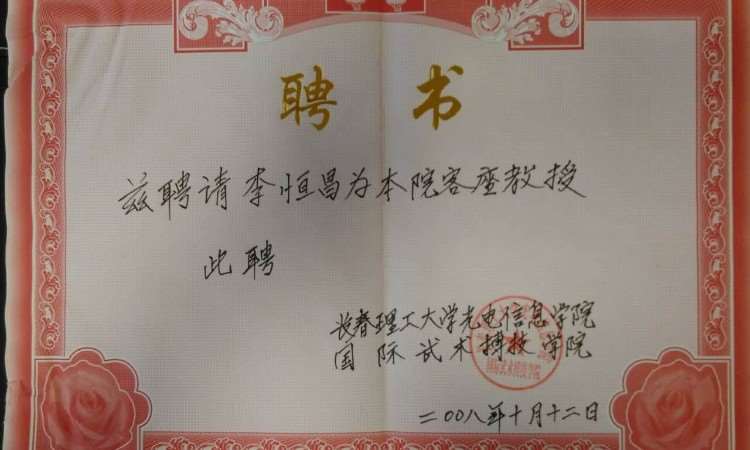 聘书
兹聘请李恒昌为本院客座教授
此聘
长春理工大学光电信息学院
国际武术搏技学院
二00八年十月十二日